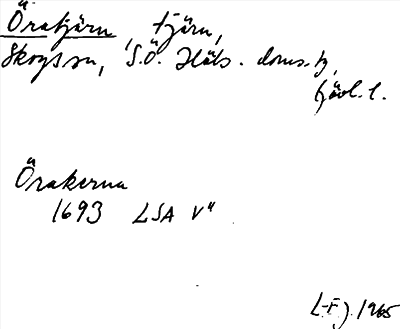 Öratjärn, tjärn,
Skogs sn, S.Ö. Häls. doms.g,
Gävl. l.
Örakerna
1693 LSA V"
L-F J. 1965